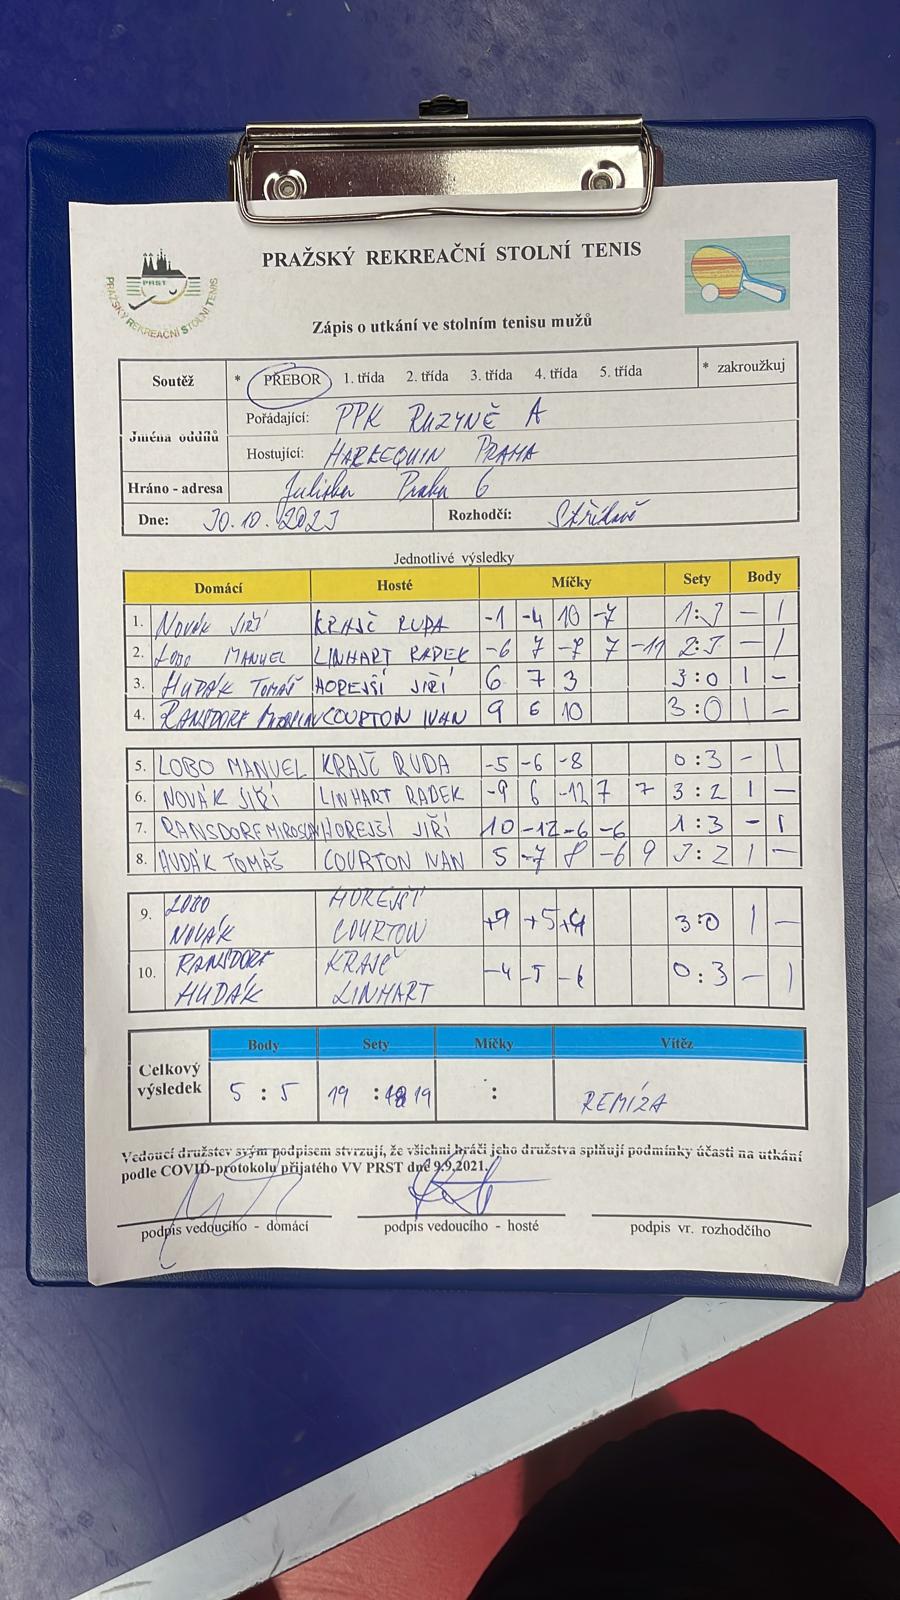 PRAŽSKÝ REKREAČNÍ STOLNÍ TENIS
PRST
PRAŽSKÝ REKREAČNÍ STOLNÍ TENIS
Zápis o utkání ve stolním tenisu mužů
Soutěž * PŘEBOR 1. třída 2. třída 3. třída 4. třída 5. třída * zakroužkuj
Jména oddílů
Pořádající: PPK RUZYNĚ A
Hostující: HARLEQUIN PRAHA
Hráno - adresa Juliska Praha 6
Dne: 30.10.2023 Rozhodčí: Střídavě
Jednotlivé výsledky
Domácí Hosté Míčky Sety Body
1. NOVÁK JIŘÍ KRAJČ RUDA -1 -4 10 -7 1:3 - 1
2. LOBO MANUEL LINHART RADEK -6 7 -7 7 -11 2:3 - 1
3. HUDÁK TOMÁŠ HOREJŠÍ JIŘÍ 6 7 3 3:0 1 -
4. RANSDORF COURTON IVAN 9 6 10 3:0 1 -
5. LOBO MANUEL KRAJČ RUDA -5 -6 -8 0:3 - 1
6. NOVÁK JIŘÍ LINHART RADEK -9 6 -12 7 7 3:2 1 -
7. RANSDORF MIROSLAV HOREJŠÍ JIŘÍ 10 -12 -6 -6 1:3 - 1
8. HUDÁK TOMÁŠ COURTON IVAN 5 -7 8 -6 9 3:2 1 -
9. LOBO HOREJŠÍ
NOVÁK COURTON +9 +5 +4 3:0 1 -
10. RANSDORF KRAJČ
HUDÁK LINHART -4 -5 -6 0:3 - 1
Body Sety Míčky Vítěz
Celkový výsledek 5 : 5 19 : 19 : REMÍZA
Vedoucí družstev svým podpisem stvrzují, že všichni hráči jeho družstva splňují podmínky účasti na utkání
podle COVID-protokolu přijatého VV PRST dne 9.9.2021.
podpis vedoucího - domácí podpis vedoucího - hosté podpis vr. rozhodčího